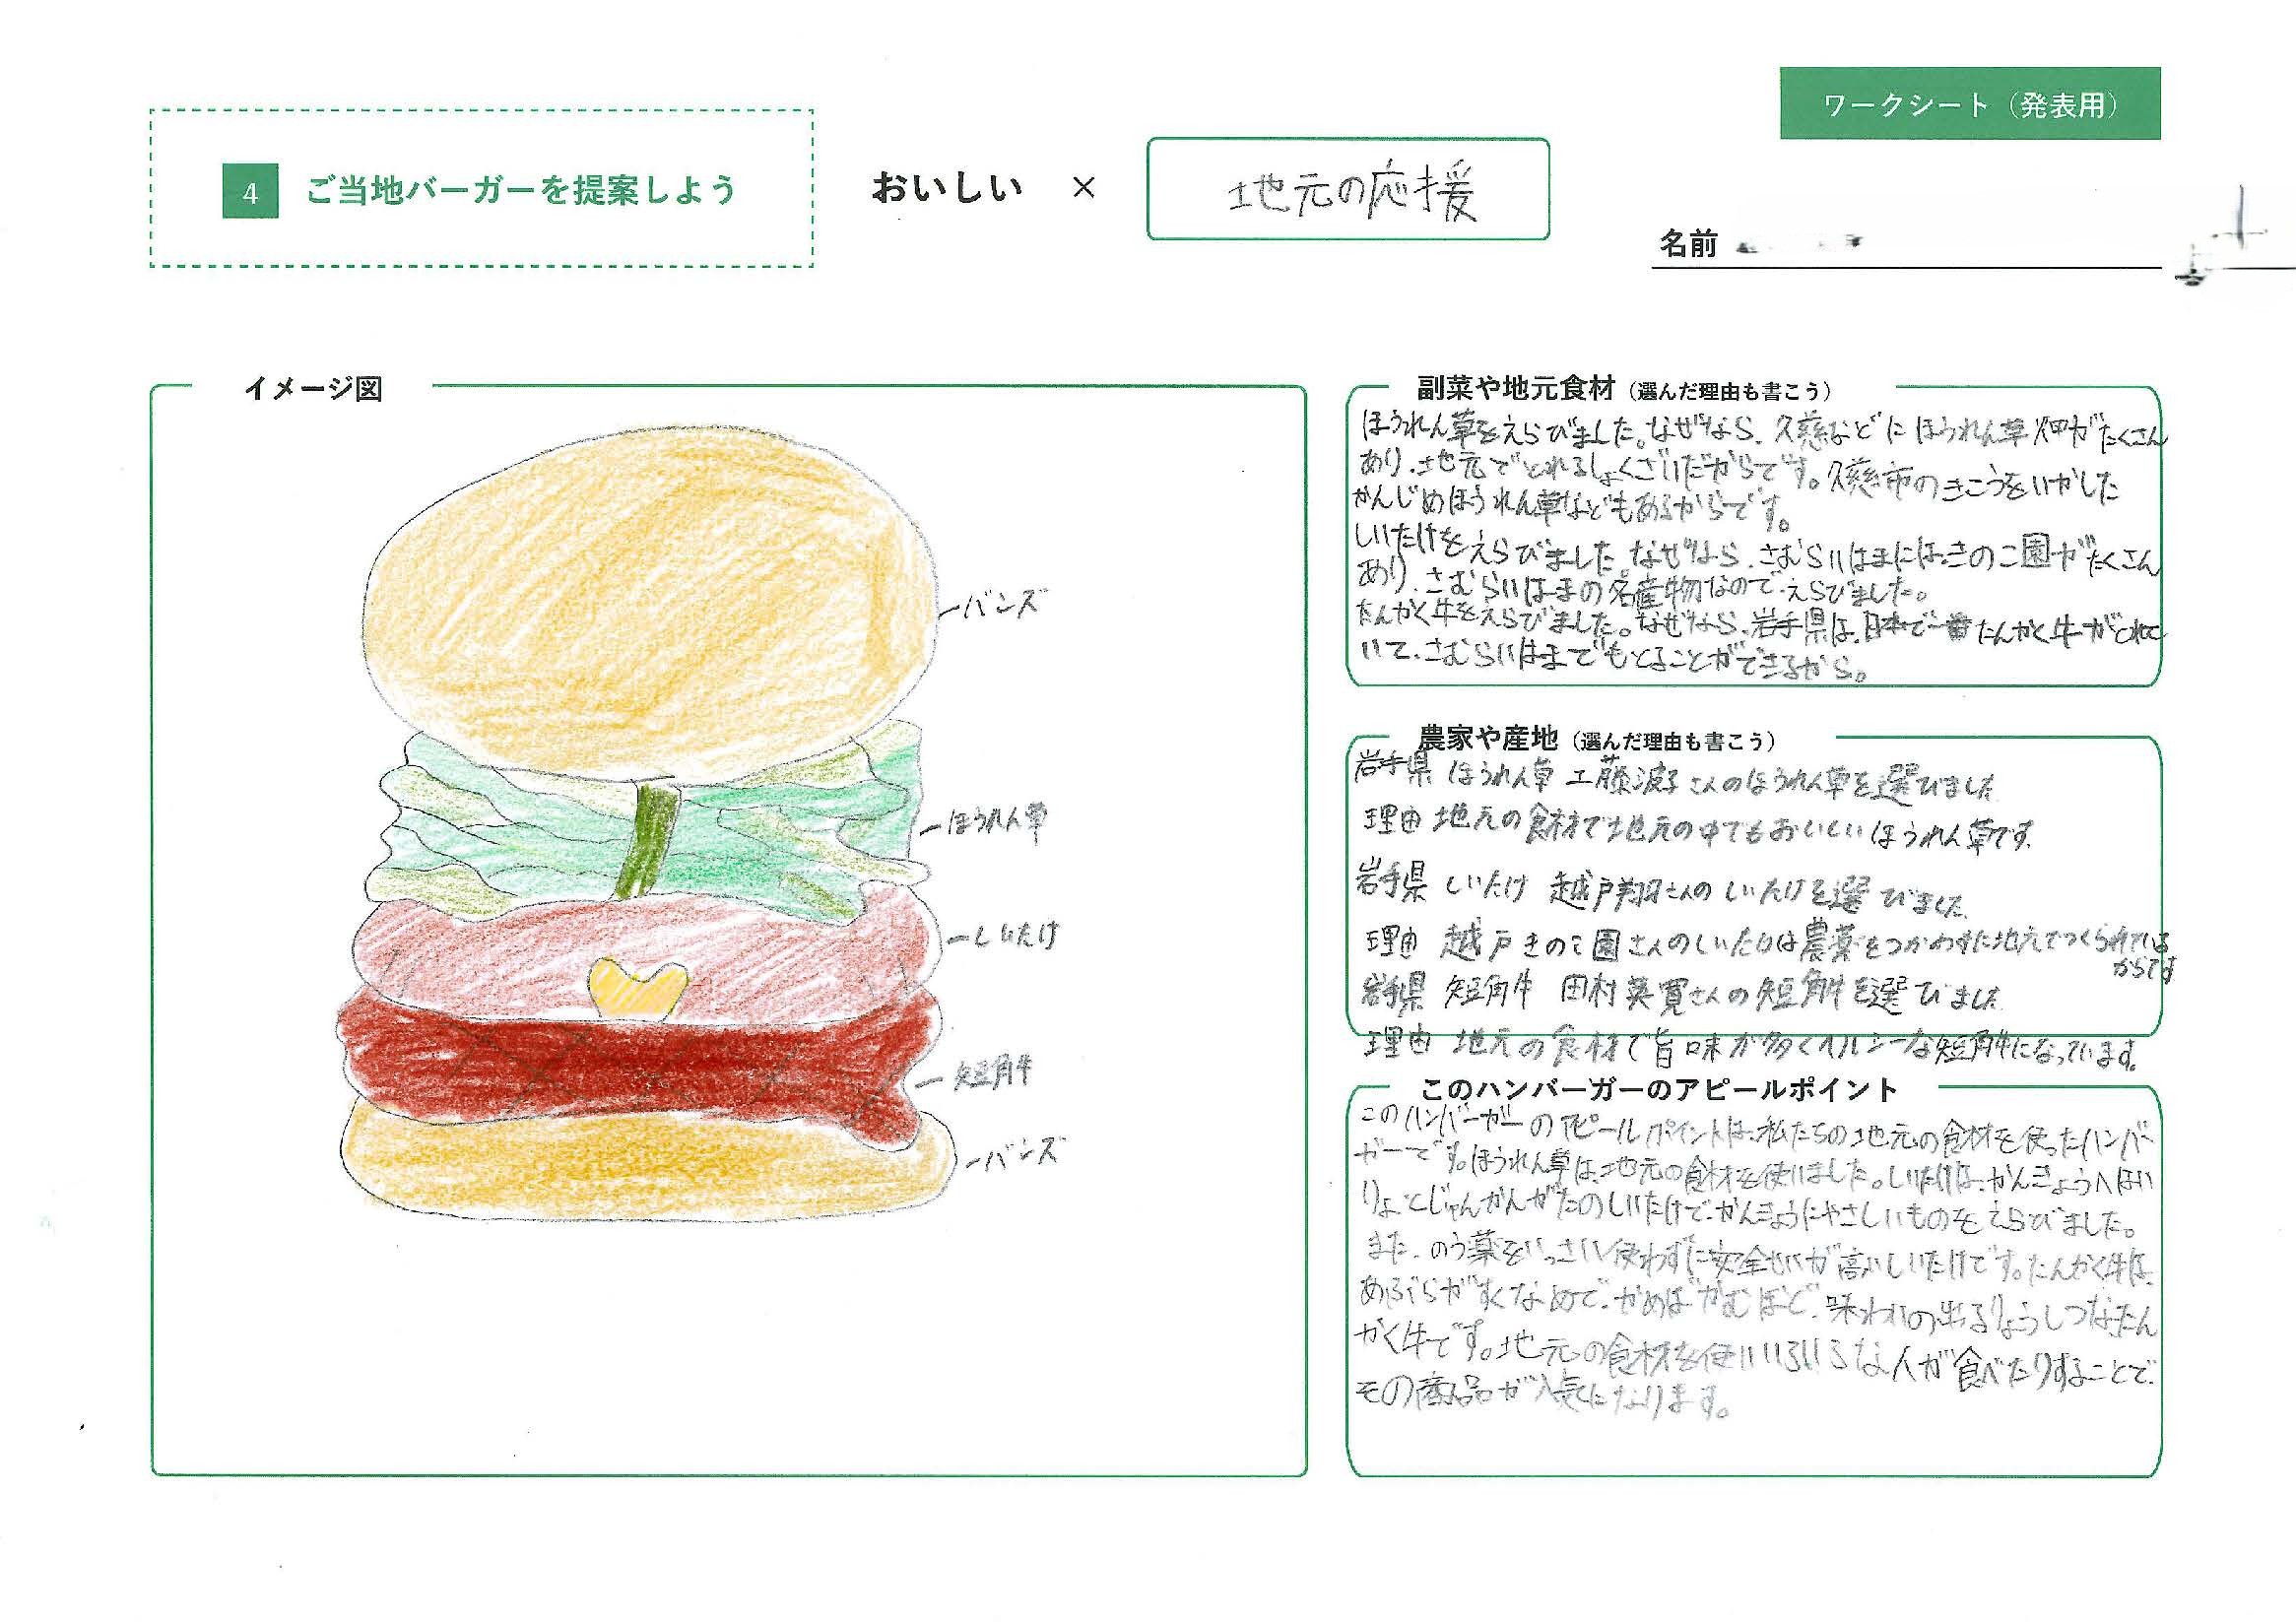 ワークシート（発表用）
4 ご当地バーガーを提案しよう
おいしい × 地元の応援
名前
イメージ図
バンズ
ほうれん草
しいたけ
短角牛
バンズ
副菜や地元食材（選んだ理由も書こう）
ほうれん草をえらびました。なぜなら、久慈などにほうれん草畑がたくさん
あり、地元でとれるしょくざいだからです。久慈市のきこうをいかした
かんじめほうれん草などもあるからです。
しいたけをえらびました。なぜなら、さむらいはまには、きのこ園がたくさん
あり、さむらいはまの名産物なので、えらびました。
たんかく牛をえらびました。なぜなら、岩手県は、日本で一番たんかく牛がとれて
いて、さむらいはまでもとることができるから。
農家や産地（選んだ理由も書こう）
岩手県 ほうれん草 工藤 さんのほうれん草を選びました
理由 地元の食材で地元の中でもおいしいほうれん草です。
岩手県 しいたけ 越戸翔さんのしいたけを選びました
理由 越戸きのこ園さんのしいたけは農薬をつかわずに地元でつくられている
からです
岩手県 短角牛 田村英寛さんの短角牛を選びました
理由 地元の食材で旨味が多くヘルシーな短角牛になっています。
このハンバーガーのアピールポイント
このハンバーガーのアピールポイントは、私たちの地元の食材を使ったハンバー
ガーです。ほうれん草は、地元の食材を使いました。しいたけは、かんきょうへはい
りょとじゅんかんがたのしいたけで、かんきょうにやさしいものをえらびました。
また、のう薬をいっさい使わずに安全せいが高いしいたけです。たんかく牛は、
あぶらがすくなめで、かめばかむほど、味わいの出るりょうしつなたん
かく牛です。地元の食材を使いいろいろな人が食べたりすることで、
その商品が人気になります。